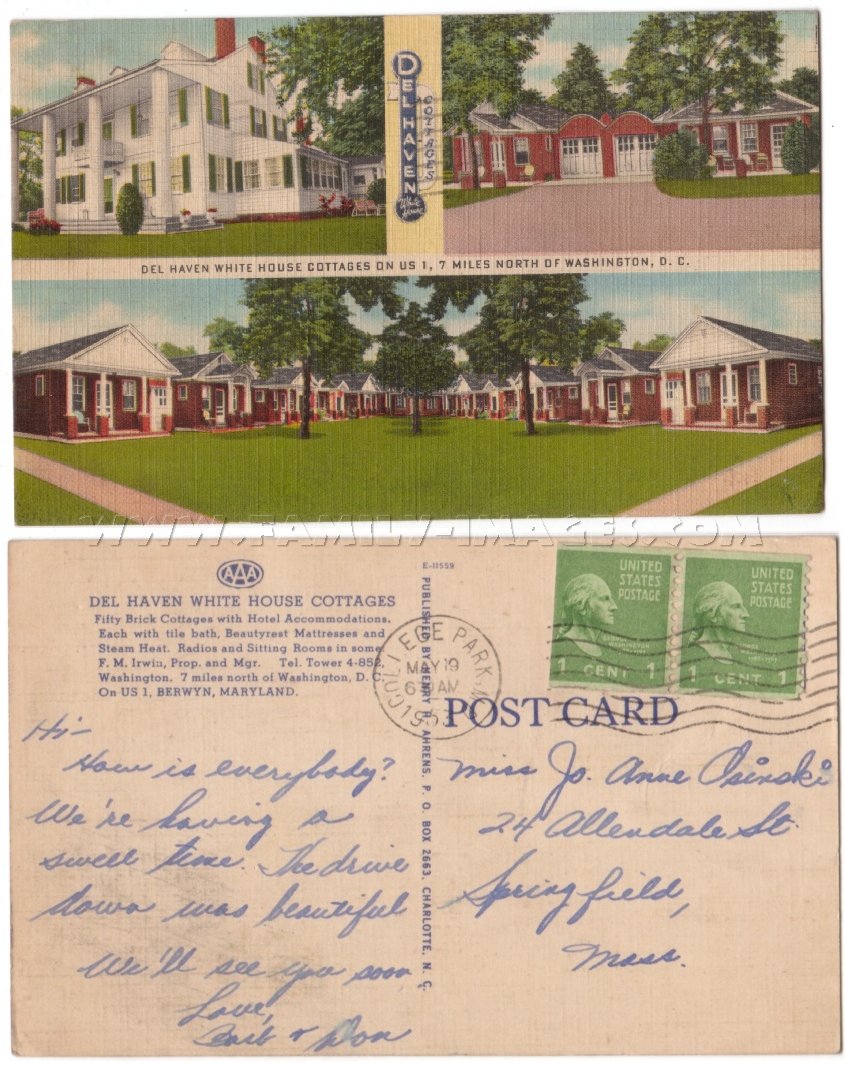 DEL HAVEN
COTTAGES
White House
DEL HAVEN WHITE HOUSE COTTAGES ON US 1, 7 MILES NORTH OF WASHINGTON, D. C.
WWW.FAMILY-IMAGES.COM
AAA
DEL HAVEN WHITE HOUSE COTTAGES
Fifty Brick Cottages with Hotel Accommodations.
Each with tile bath, Beautyrest Mattresses and
Steam Heat. Radios and Sitting Rooms in some
F. M. Irwin, Prop. and Mgr. Tel. Tower 4-852
Washington. 7 miles north of Washington, D. C.
On US 1, BERWYN, MARYLAND.
E-11559
PUBLISHED BY HENRY H. AHRENS, P. O. BOX 2663, CHARLOTTE, N. C.
COLLEGE PARK, M
MAY 19
6 AM
UNITED
STATES
POSTAGE
1 CENT 1
UNITED
STATES
POSTAGE
1 CENT 1
POST CARD
Hi-
How is everybody?
We're having a
swell time. The drive
down was beautiful
We'll see you soon
Love,
Barb + Don
Miss Jo. Anne Osinski
24 Allendale St.
Springfield,
Mass.